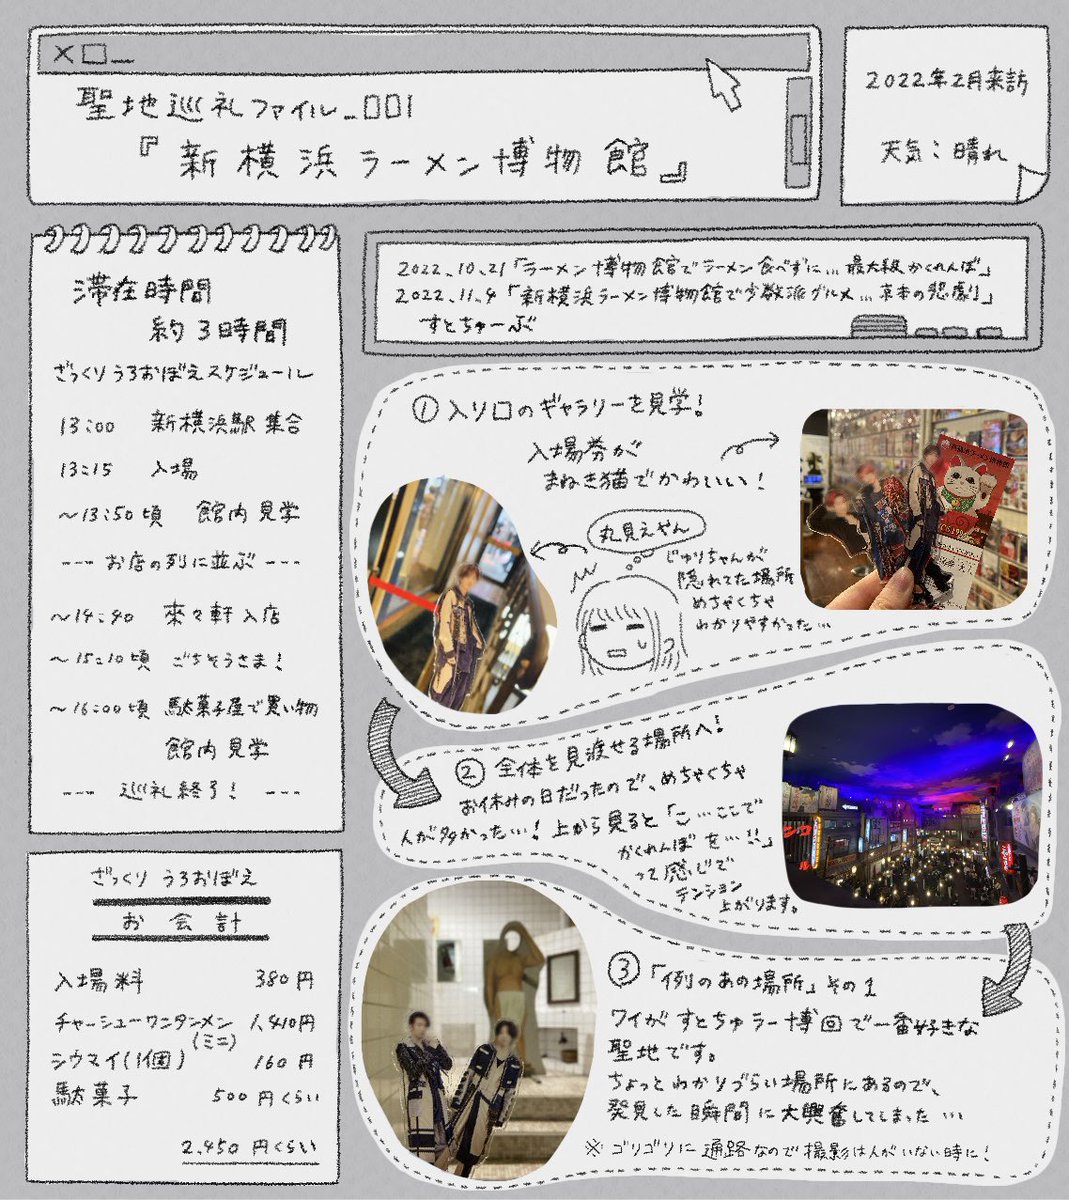 聖地巡礼ファイル_001
『新横浜ラーメン博物館』
2022年2月来訪
天気：晴れ
滞在時間
約3時間
ざっくりうろおぼえスケジュール
13:00 新横浜駅集合
13:15 入場
～13:50頃 館内見学
--- お店の列に並ぶ ---
～14:40 來々軒入店
～15:10頃 ごちそうさま！
～16:00頃 駄菓子屋で買い物
館内見学
--- 巡礼終了！ ---
ざっくり うろおぼえ
お会計
入場料 380円
チャーシューワンタンメン 1,410円
(ミニ)
シウマイ(1個) 160円
駄菓子 500円くらい
2,450円くらい
2022.10.21「ラーメン博物館でラーメン食べずに…最大級かくれんぼ」
2022.11.4「新横浜ラーメン博物館で少数派グルメ…京本の悲劇」
すとちゅーぶ
① 入り口のギャラリーを見学！
入場券が
まねき猫でかわいい！
丸見えやん
じゅりちゃんが
隠れてた場所
めちゃくちゃ
わかりやすかった…
② 全体を見渡せる場所へ！
お休みの日だったので、めちゃくちゃ
人が多かった…！上から見ると「こ…ここで
かくれんぼを…!!」
って感じで
テンション
上がります。
③「例のあの場所」その1
ワイがすとちゅラー博回で一番好きな
聖地です。
ちょっとわかりづらい場所にあるので、
発見した瞬間に大興奮してしまった…
※ゴリゴリに通路なので撮影は人がいない時に！